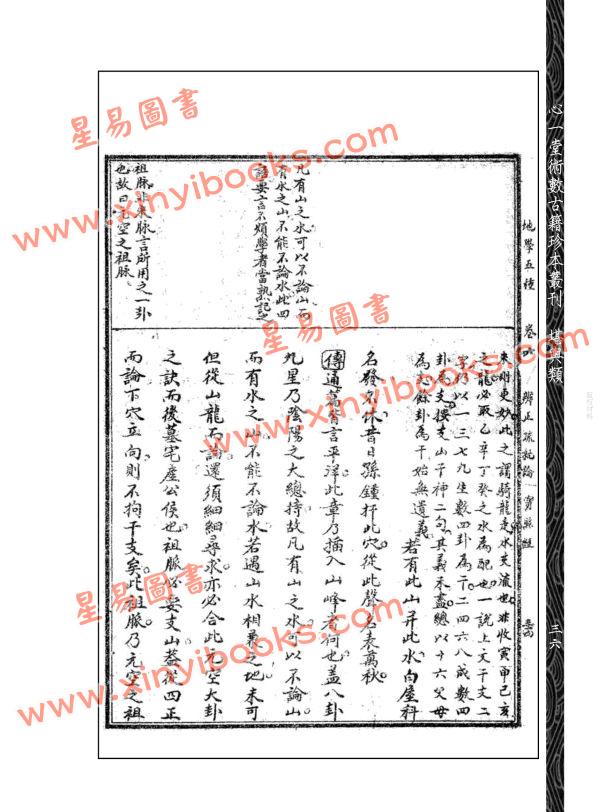 心一堂術數古籍珍本叢刊　堪輿類
三六
地學五種
辯正疏批論
之龍必取乙辛丁癸之水為配也一說上文干支二
字乃以一三七九生數四卦為干二四六八成數四
卦為支接支山干神二句其義未盡總以十六父母
為支餘卦為干始無遺義
若有此山幷此水白屋科
名發不休昔日孫鍾扞此穴從此聲名表萬秋
傳通篇皆言平洋此章乃插入山峰者何也蓋八卦
九星乃陰陽之大總持故凡有山之水可以不論山
而有水之山不能不論水若遇山水相兼之地未可
但從山龍而論還須細細尋求亦必合此元空大卦
之訣而後墓宅產公侯也祖脈必要支山蓋從四正
而論下穴立向則不拘干支矣此祖脈乃元空之祖
凡有山之水可以不論山而
有水之山不能不論水此四
要言不煩學者當熟記之
祖脈非來脈言所用之一卦
也故曰元空之祖脈
星易圖書
www.xinyibooks.com
星易圖書
www.xinyibooks.com
星易圖書
www.xinyibooks.com